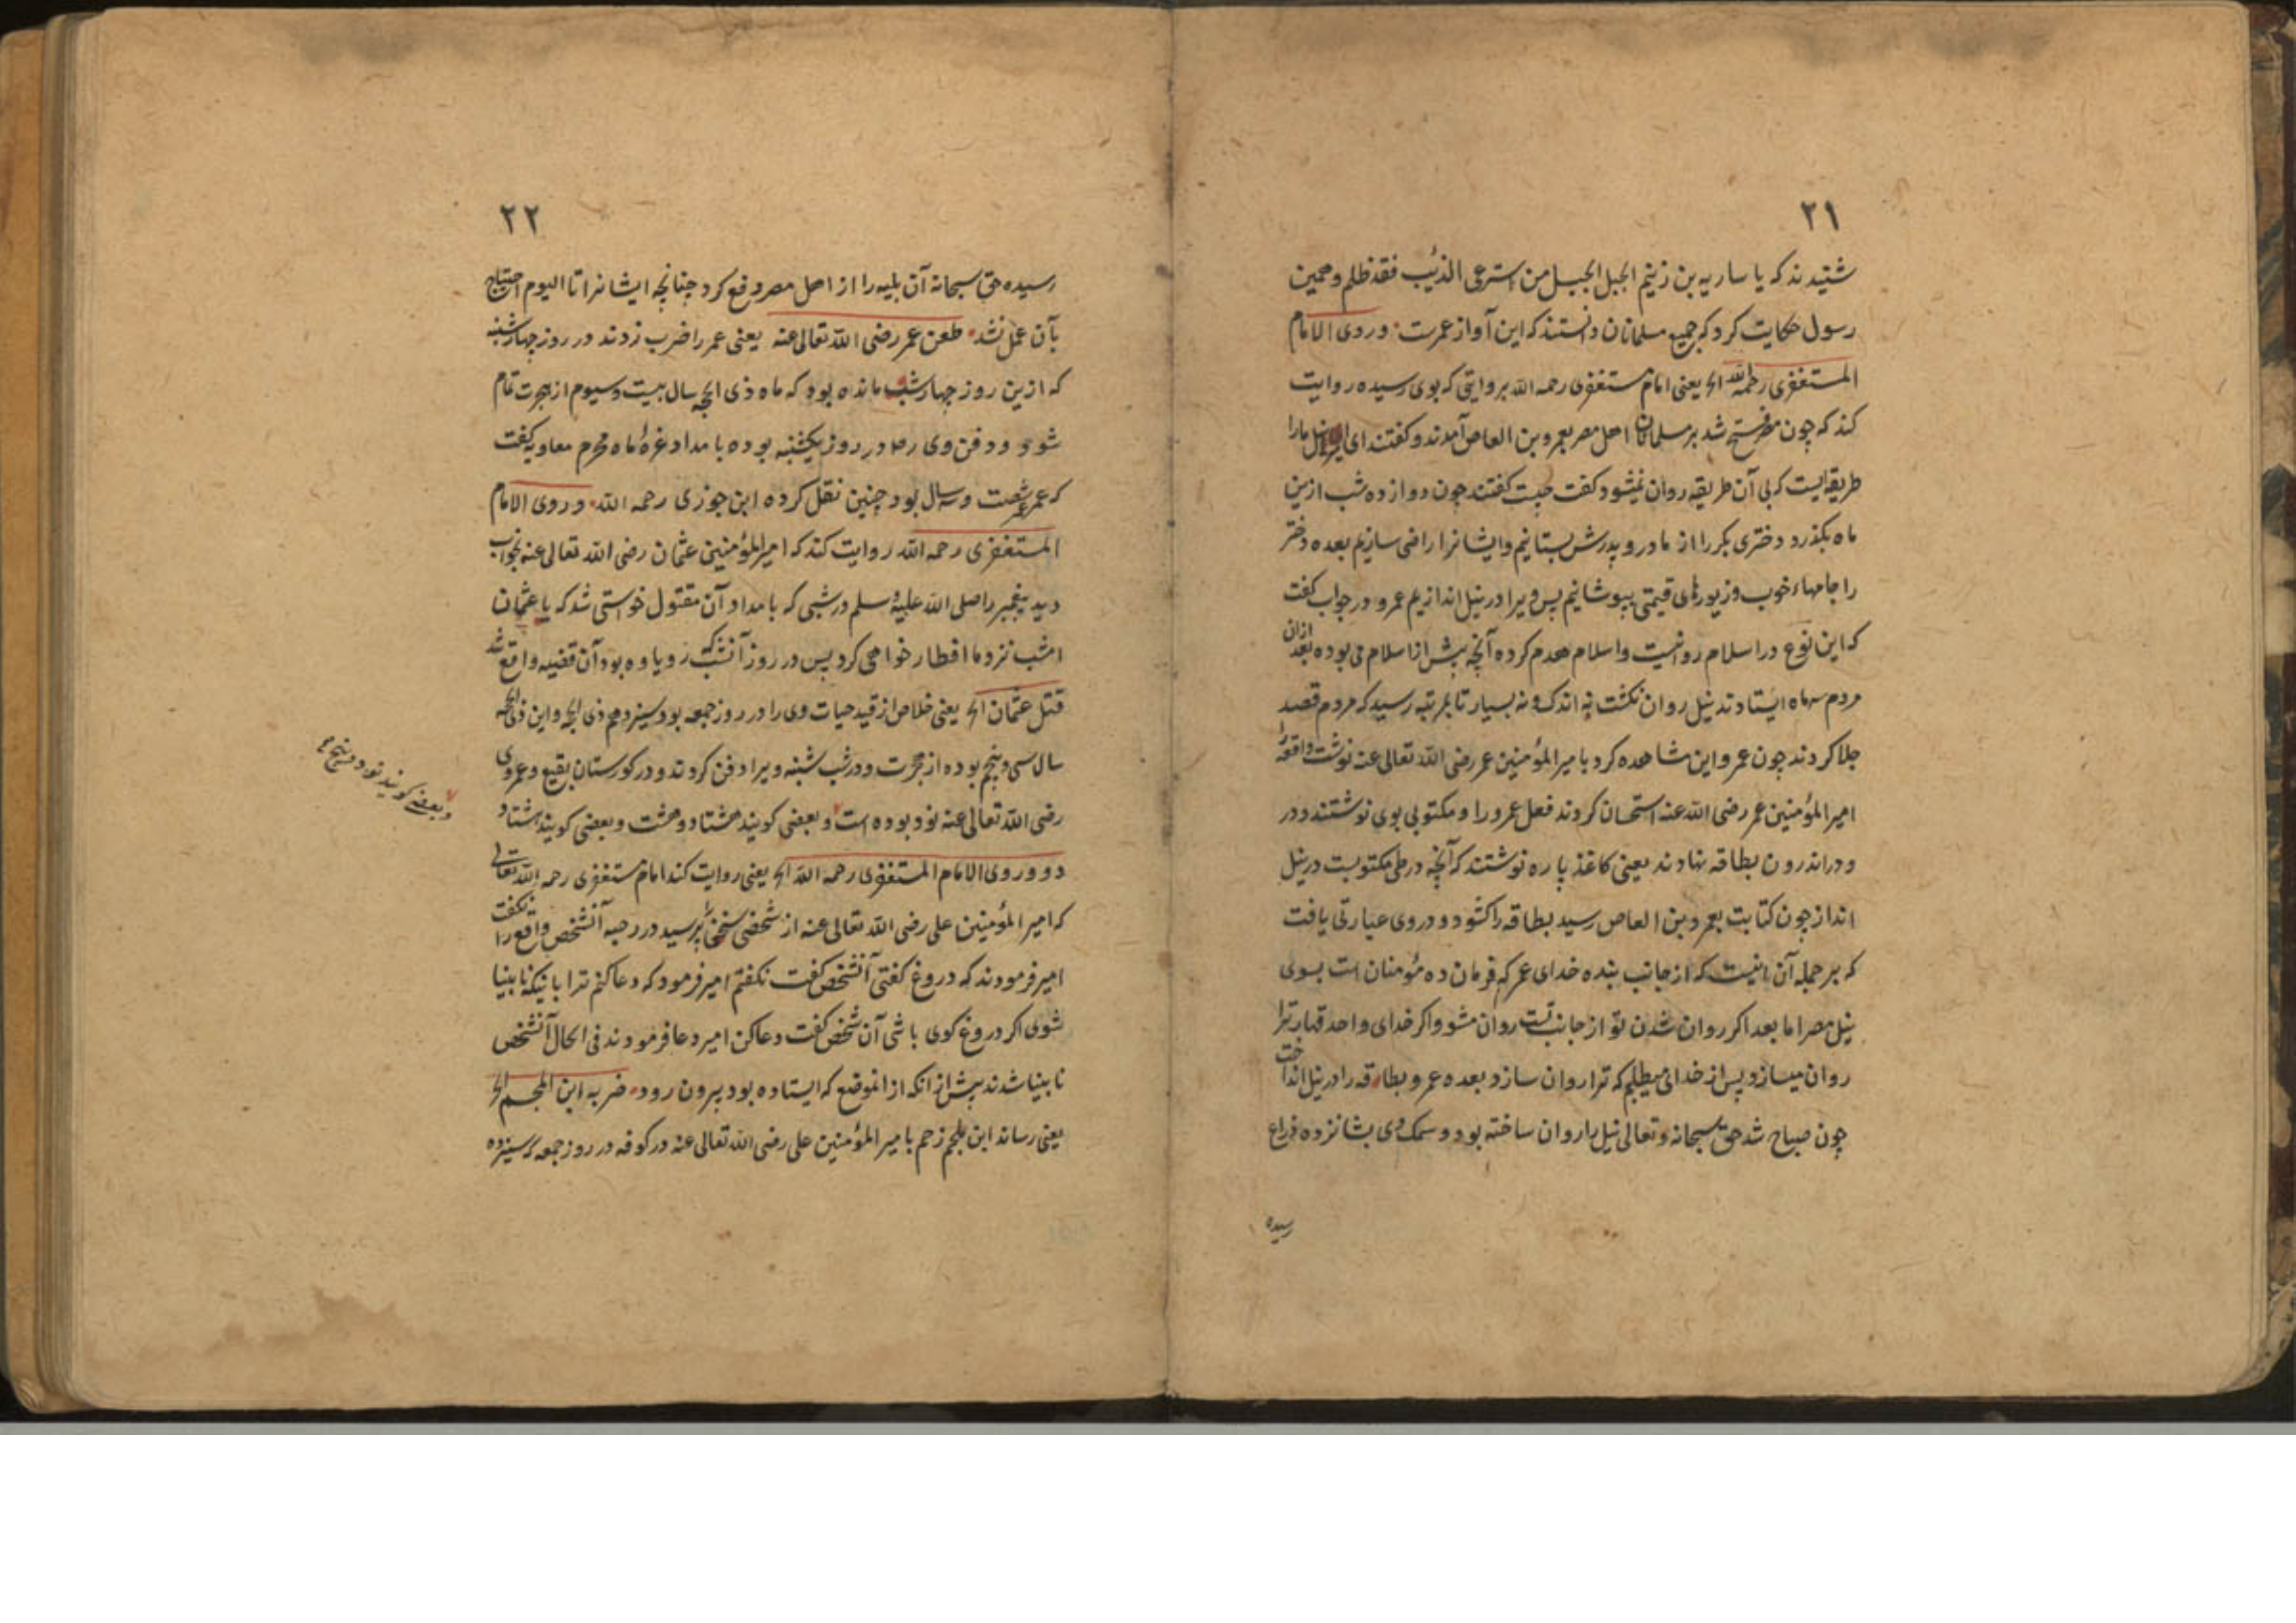 ۲۱
شنیدند که یا ساریه بن زنیم الجبل الجبل من استرعی الذئب فقد ظلم و همین
رسول حکایت کرد که جمیع مسلمانان دانستند که این آواز عمرست وروی الامام
المستغفری رحمه الله الخ یعنی امام مستغفری رحمه الله بروایتی که بوی رسیده روایت
کند که چون مصر فتح شد بر مسلمانان اهل مصر بعمرو بن العاص آمدند و کفتند ای امیر نیل مارا
طریقه‌ایست که بی آن طریقه روان نمیشود کفت چیست کفتند چون دوازده شب ازین
ماه بکذرد دختری بکر را از مادر و پدرش بستانیم و ایشانرا راضی سازیم بعده دختر
را جامهاء خوب و زیورهای قیمتی بپوشانیم پس ویرا در نیل اندازیم عمرو در جواب کفت
که این نوع در اسلام روا نیست و اسلام هدم کرده آنچه پیش از اسلام می بوده بعد ازان
مردم سه ماه ایستادند نیل روان نکشت نه اندک و نه بسیار تا بمرتبه رسید که مردم قصد
جلا کردند چون عمرو این مشاهده کرد بامیر المؤمنین عمر رضی الله تعالی عنه نوشت واقعه را
امیر المؤمنین عمر رضی الله عنه استحسان کردند فعل عمرو را و مکتوبی بوی نوشتند و در
و در اندرون بطاقه نهادند یعنی کاغذ پاره نوشتند که آنچه در طی مکتوبست در نیل
انداز چون کتابت بعمرو بن العاص رسید بطاقه را کشود و در وی عبارتی یافت
که بر جمله آن اینست که از جانب بنده خدای عمر که فرمان ده مؤمنان است بسوی
نیل مصر اما بعد اکر روان شدن تو از جانب تست روان مشو و اکر خدای واحد قهار ترا
روان میسازد پس از خدای میطلبم که ترا روان سازد بعده عمرو بطاقه را در نیل انداخت
چون صباح شد حق سبحانه و تعالی نیل را روان ساخته بود و سمک وی بشانزده ذراع
رسیده
۲۲
رسیده حق سبحانه آن بلیه را از اهل مصر دفع کرد چنانچه ایشانرا تا الیوم احتیاج
بآن عمل نشد طعن عمر رضی الله تعالی عنه یعنی عمر را ضرب زدند در روز چهارشنبه
که ازین روز چهار شب مانده بود که ماه ذی الحجه سال بیست و سیوم از هجرت تمام
شود و دفن وی رضه در روز یکشنبه بوده بامداد غره ماه محرم معاویه کفت
که عمر عمرش شصت و سه سال بود چنین نقل کرده ابن جوزی رحمه الله وروی الامام
المستغفری رحمه الله روایت کند که امیر المؤمنین عثمان رضی الله تعالی عنه بخواب
دید پیغمبر را صلی الله علیه وسلم در شبی که بامداد آن مقتول خواستی شد که یا عثمان
امشب نزد ما افطار خواهی کرد پس در روز آنشب که رویا وه بود آن قضیه واقع شد
قتل عثمان الخ یعنی خلاص از قید حیات وی را در روز جمعه بود سیزدهم ذی الحجه و این ذی الحجه
سال سی و پنجم بوده از هجرت و در شب شنبه ویرا دفن کردند و در کورستان بقیع و عمر وی
رضی الله تعالی عنه نود بوده است و بعضی کویند هشتاد و هشت و بعضی کویند هشتاد
و بعضی کویند نود و پنج
دو وروی الامام المستغفری رحمه الله الخ یعنی روایت کند امام مستغفری رحمه الله تعالی
که امیر المؤمنین علی رضی الله تعالی عنه از شخصی سخنی را پرسید در رحبه آنشخص واقع را نکفت
امیر فرمودند که دروغ کفتی آنشخص کفت نکفتم امیر فرمود که دعا کنم ترا بانیکه نابینا
شوی اکر دروغ کوی باشی آن شخص کفت دعا کن امیر دعا فرمودند فی الحال آنشخص
نابینا شدند پیش از انکه از انموضع که ایستاده بود بیرون رود ضربه ابن الملجم الخ
یعنی رساند ابن ملجم زخم بامیر المؤمنین علی رضی الله تعالی عنه در کوفه در روز جمعه سیزده